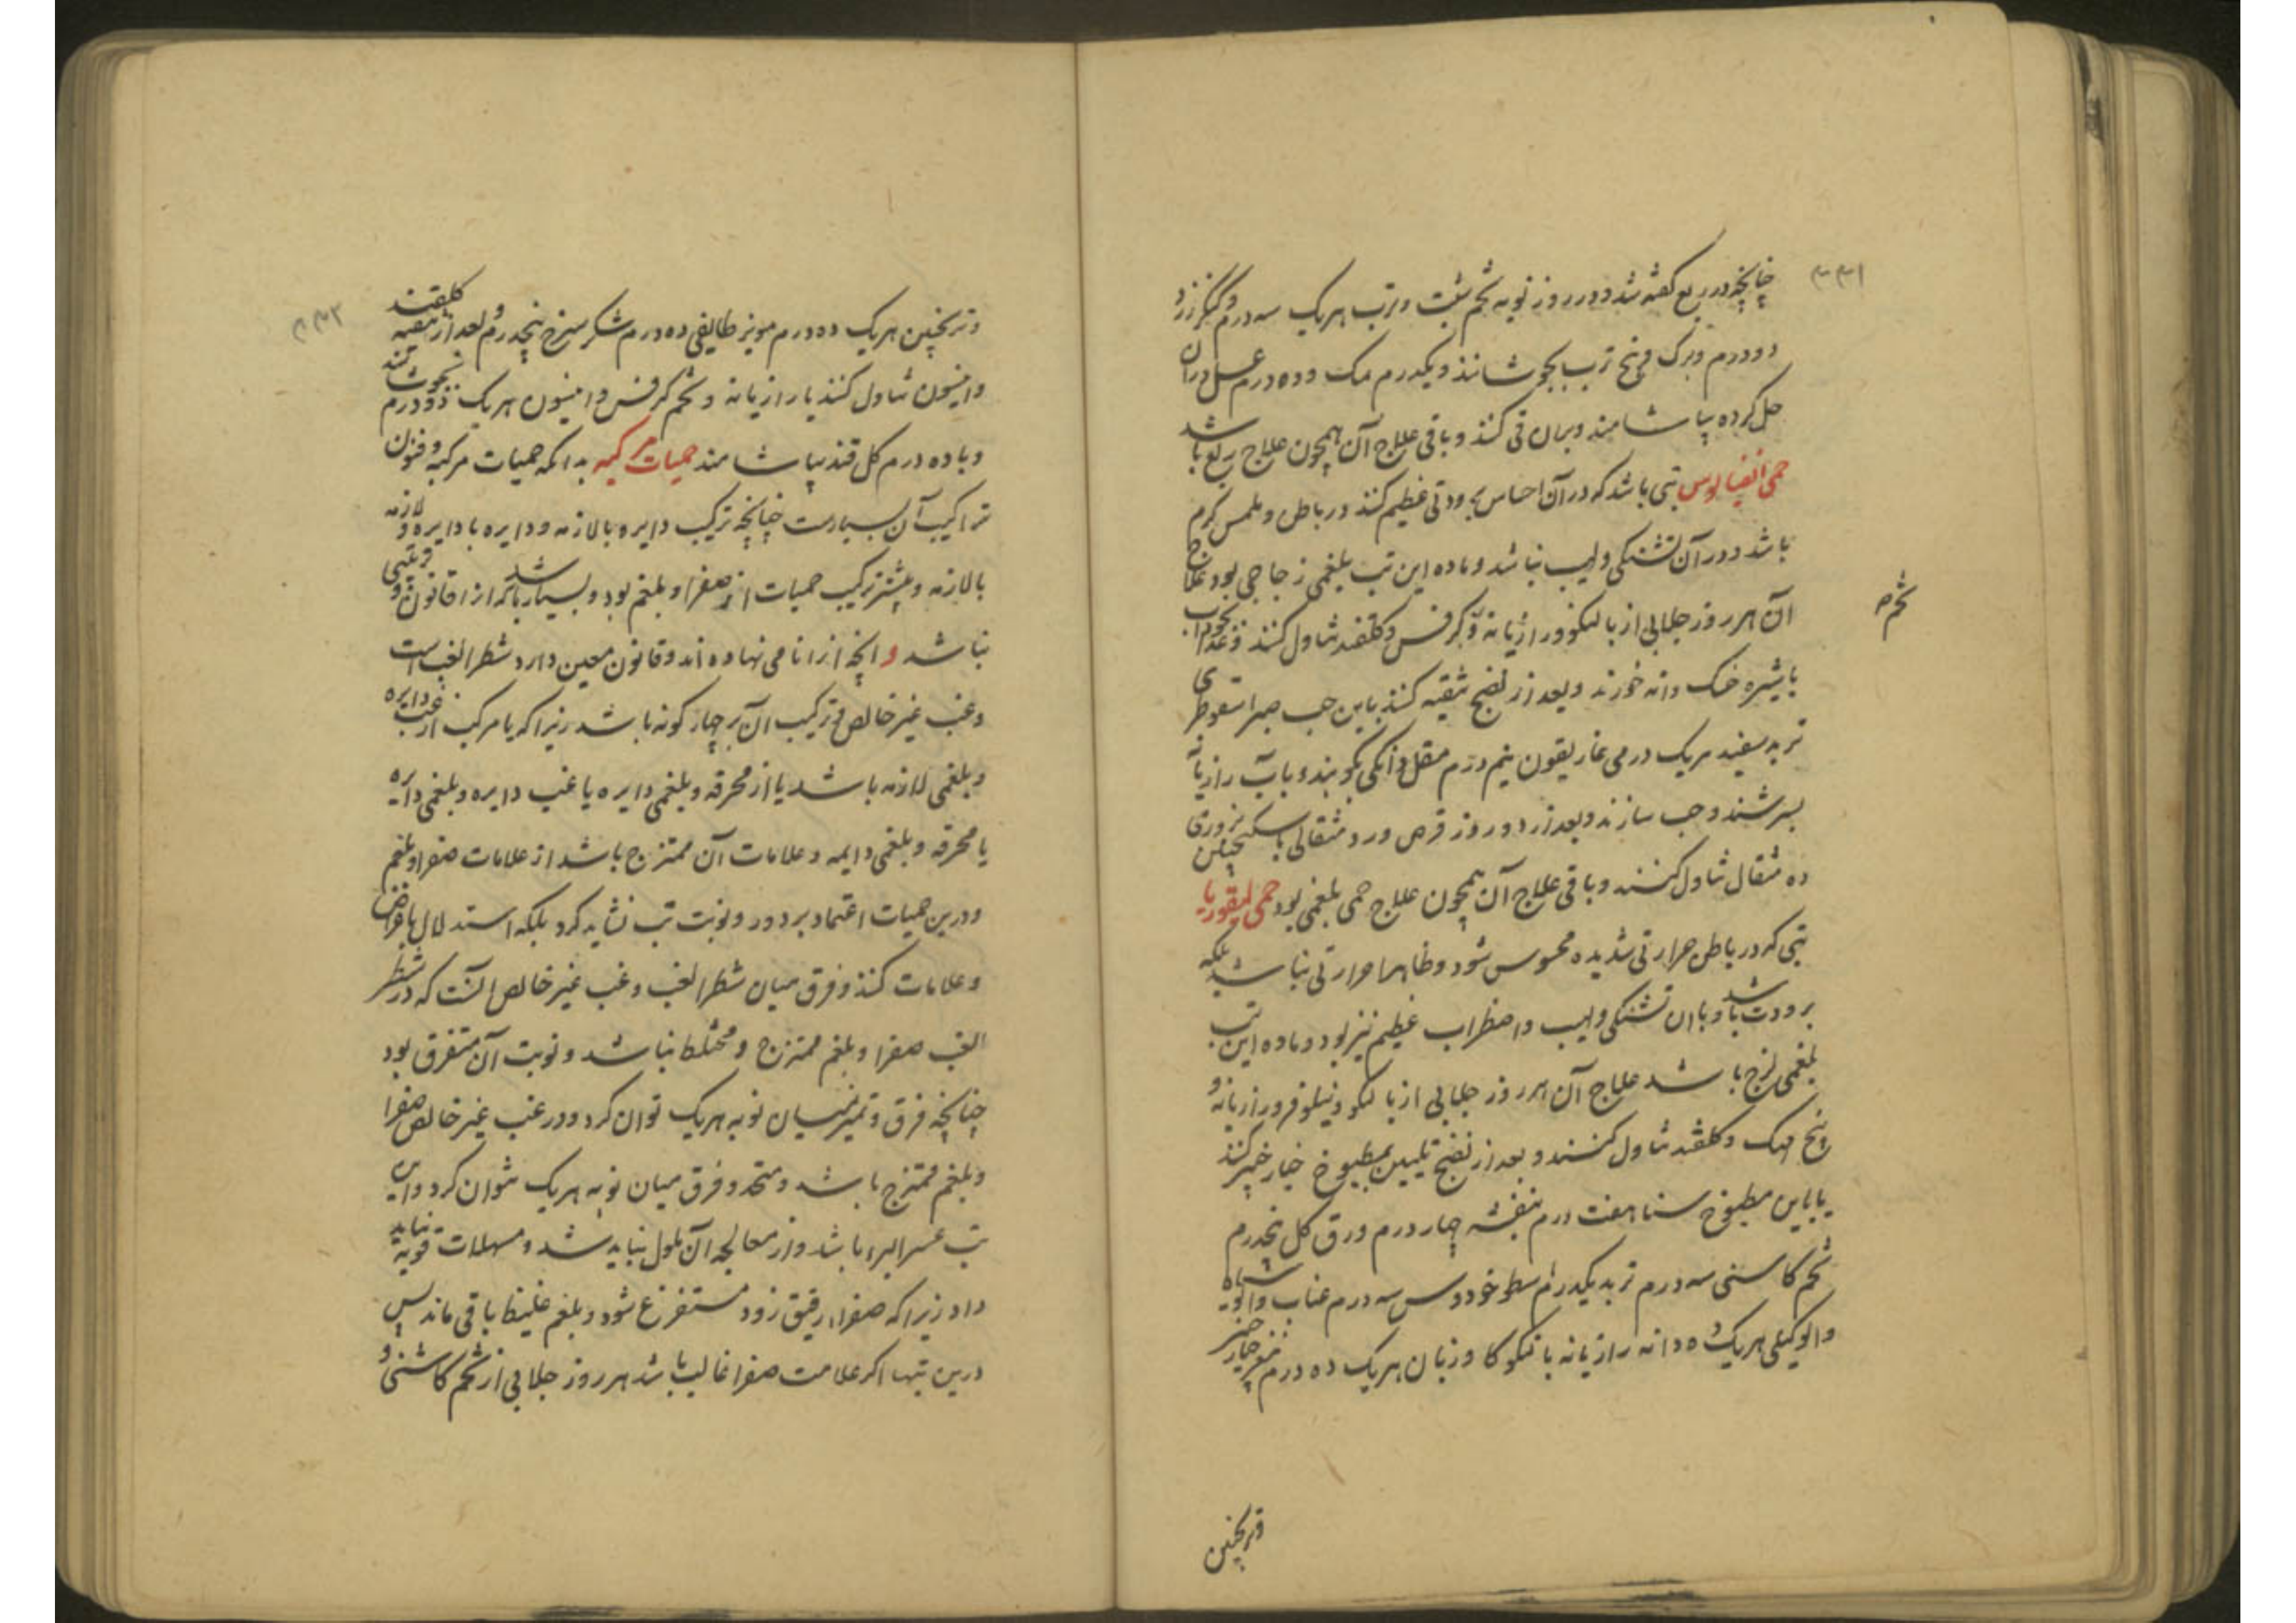 ۳۳۱
چنانچه در ربع گفته شد و در روز نوبه تخم شبت و ترب هریک سه درم و کنکرزد
دو درم و برک فرنج ترب بجوشانند و یکدرم نمک و ده درم عسل در آن
حل کرده بیاشامند و بدان قی کنند و باقی علاج آن همچون علاج ربع باشد
حمی انفیالوس تبی باشد که در آن احساس برودتی عظیم کنند در باطن و ملمس کرم
باشد و در آن تشنکی و لهیب نباشد و ماده این تب بلغمی زجاجی بود علاج
آن هر روز جلابی از بالنکو و رازیانه و کرفس و کلقند تناول کنند و غذا نخوداب
تخم صح
با شیره خسک دانه خورند و بعد از نضج تنقیه کنند باین حب صبر اسقوطری
تربد سفید هریک درمی غاریقون نیم درم مقل دانکی بکوبند و بآب رازیانه
بسرشند و حب سازند و بعد از دو روز قرص ورد مثقالی با سکنجبین بزوری
ده مثقال تناول کنند و باقی علاج آن همچون علاج حمی بلغمی بود حمی لیقوریا
تبی که در باطن حرارتی شدیده محسوس شود و ظاهرا حرارتی نباشد بلکه
برودت باشد و با ان تشنکی و لهیب و اضطراب عظیم نیز بود و ماده این تب
بلغمی لزج باشد علاج آن هر روز جلابی از بالنکو و نیلوفر و رازیانه و
بیخ مهک و کلقند تناول کنند و بعد از نضج تلیین بمطبوخ خیار چنبر کنند
یا باین مطبوخ سنا هفت درم بنفشه چهار درم ورق کل پنجدرم
تخم کاسنی سه درم تربد یکدرم اسطوخودوس سه درم عناب و الوسیاه
و الو کیلی هریک ده دانه رازیانه بالنکو کاوزبان هریک ده درم مغز خیار چنبر
و ترنجبین
۳۳۲
و ترنجبین هریک ده درم مویز طایفی ده درم شکر سرخ پنجدرم و بعد از تنقیه کلقند
و انیسون تناول کنند یا رازیانه و تخم کرفس و انیسون هریک دو درم بجوشانند
و با ده درم کل قند بیاشامند حمیات مرکبه بدانکه حمیات مرکبه و فنون
تراکیب آن بسیارست چنانچه ترکیب دایره با لازمه و دایره با دایره و لازمه
با لازمه و بیشتر ترکیب حمیات از صفرا و بلغم بود و بسیار باشد که انرا قانون و ترتیبی
نباشد و انچه انرا نامی نهاده اند و قانون معین دارد شطر الغب است
و غب غیر خالص و ترکیب آن بر چهار کونه باشد زیرا که یا مرکب از غب دایره
و بلغمی لازمه باشد یا از محرقه و بلغمی دایره یا غب دایره و بلغمی دایره
یا محرقه و بلغمی دایمه و علامات آن ممتزج باشد از علامات صفرا و بلغم
و درین حمیات اعتماد بر دور و نوبت تب نشاید کرد بلکه استدلال باعراض
و علامات کنند و فرق میان شطر الغب و غب غیر خالص آنست که در شطر
الغب صفرا و بلغم ممتزج و مختلط نباشد و نوبت آن متفرق بود
چنانچه فرق و تمیز میان نوبه هریک توان کرد و در غب غیر خالص صفرا
و بلغم ممتزج باشد و متحد و فرق میان نوبه هریک نتوان کرد و این
تب عسر البرء باشد و از معالجه آن ملول نباید شد و مسهلات قویه نباید
داد زیرا که صفراء رقیق زود مستفرغ شود و بلغم غلیظ باقی ماند پس
درین تبها اکر علامت صفرا غالب باشد هر روز جلابی از تخم کاسنی و